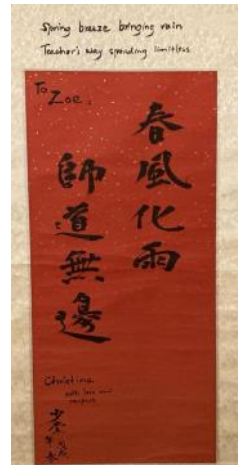 Spring breeze bringing rain
Teacher's way spreading limitless
To Zoe:
春風化雨
師道無邊
Christina
with love and
respect